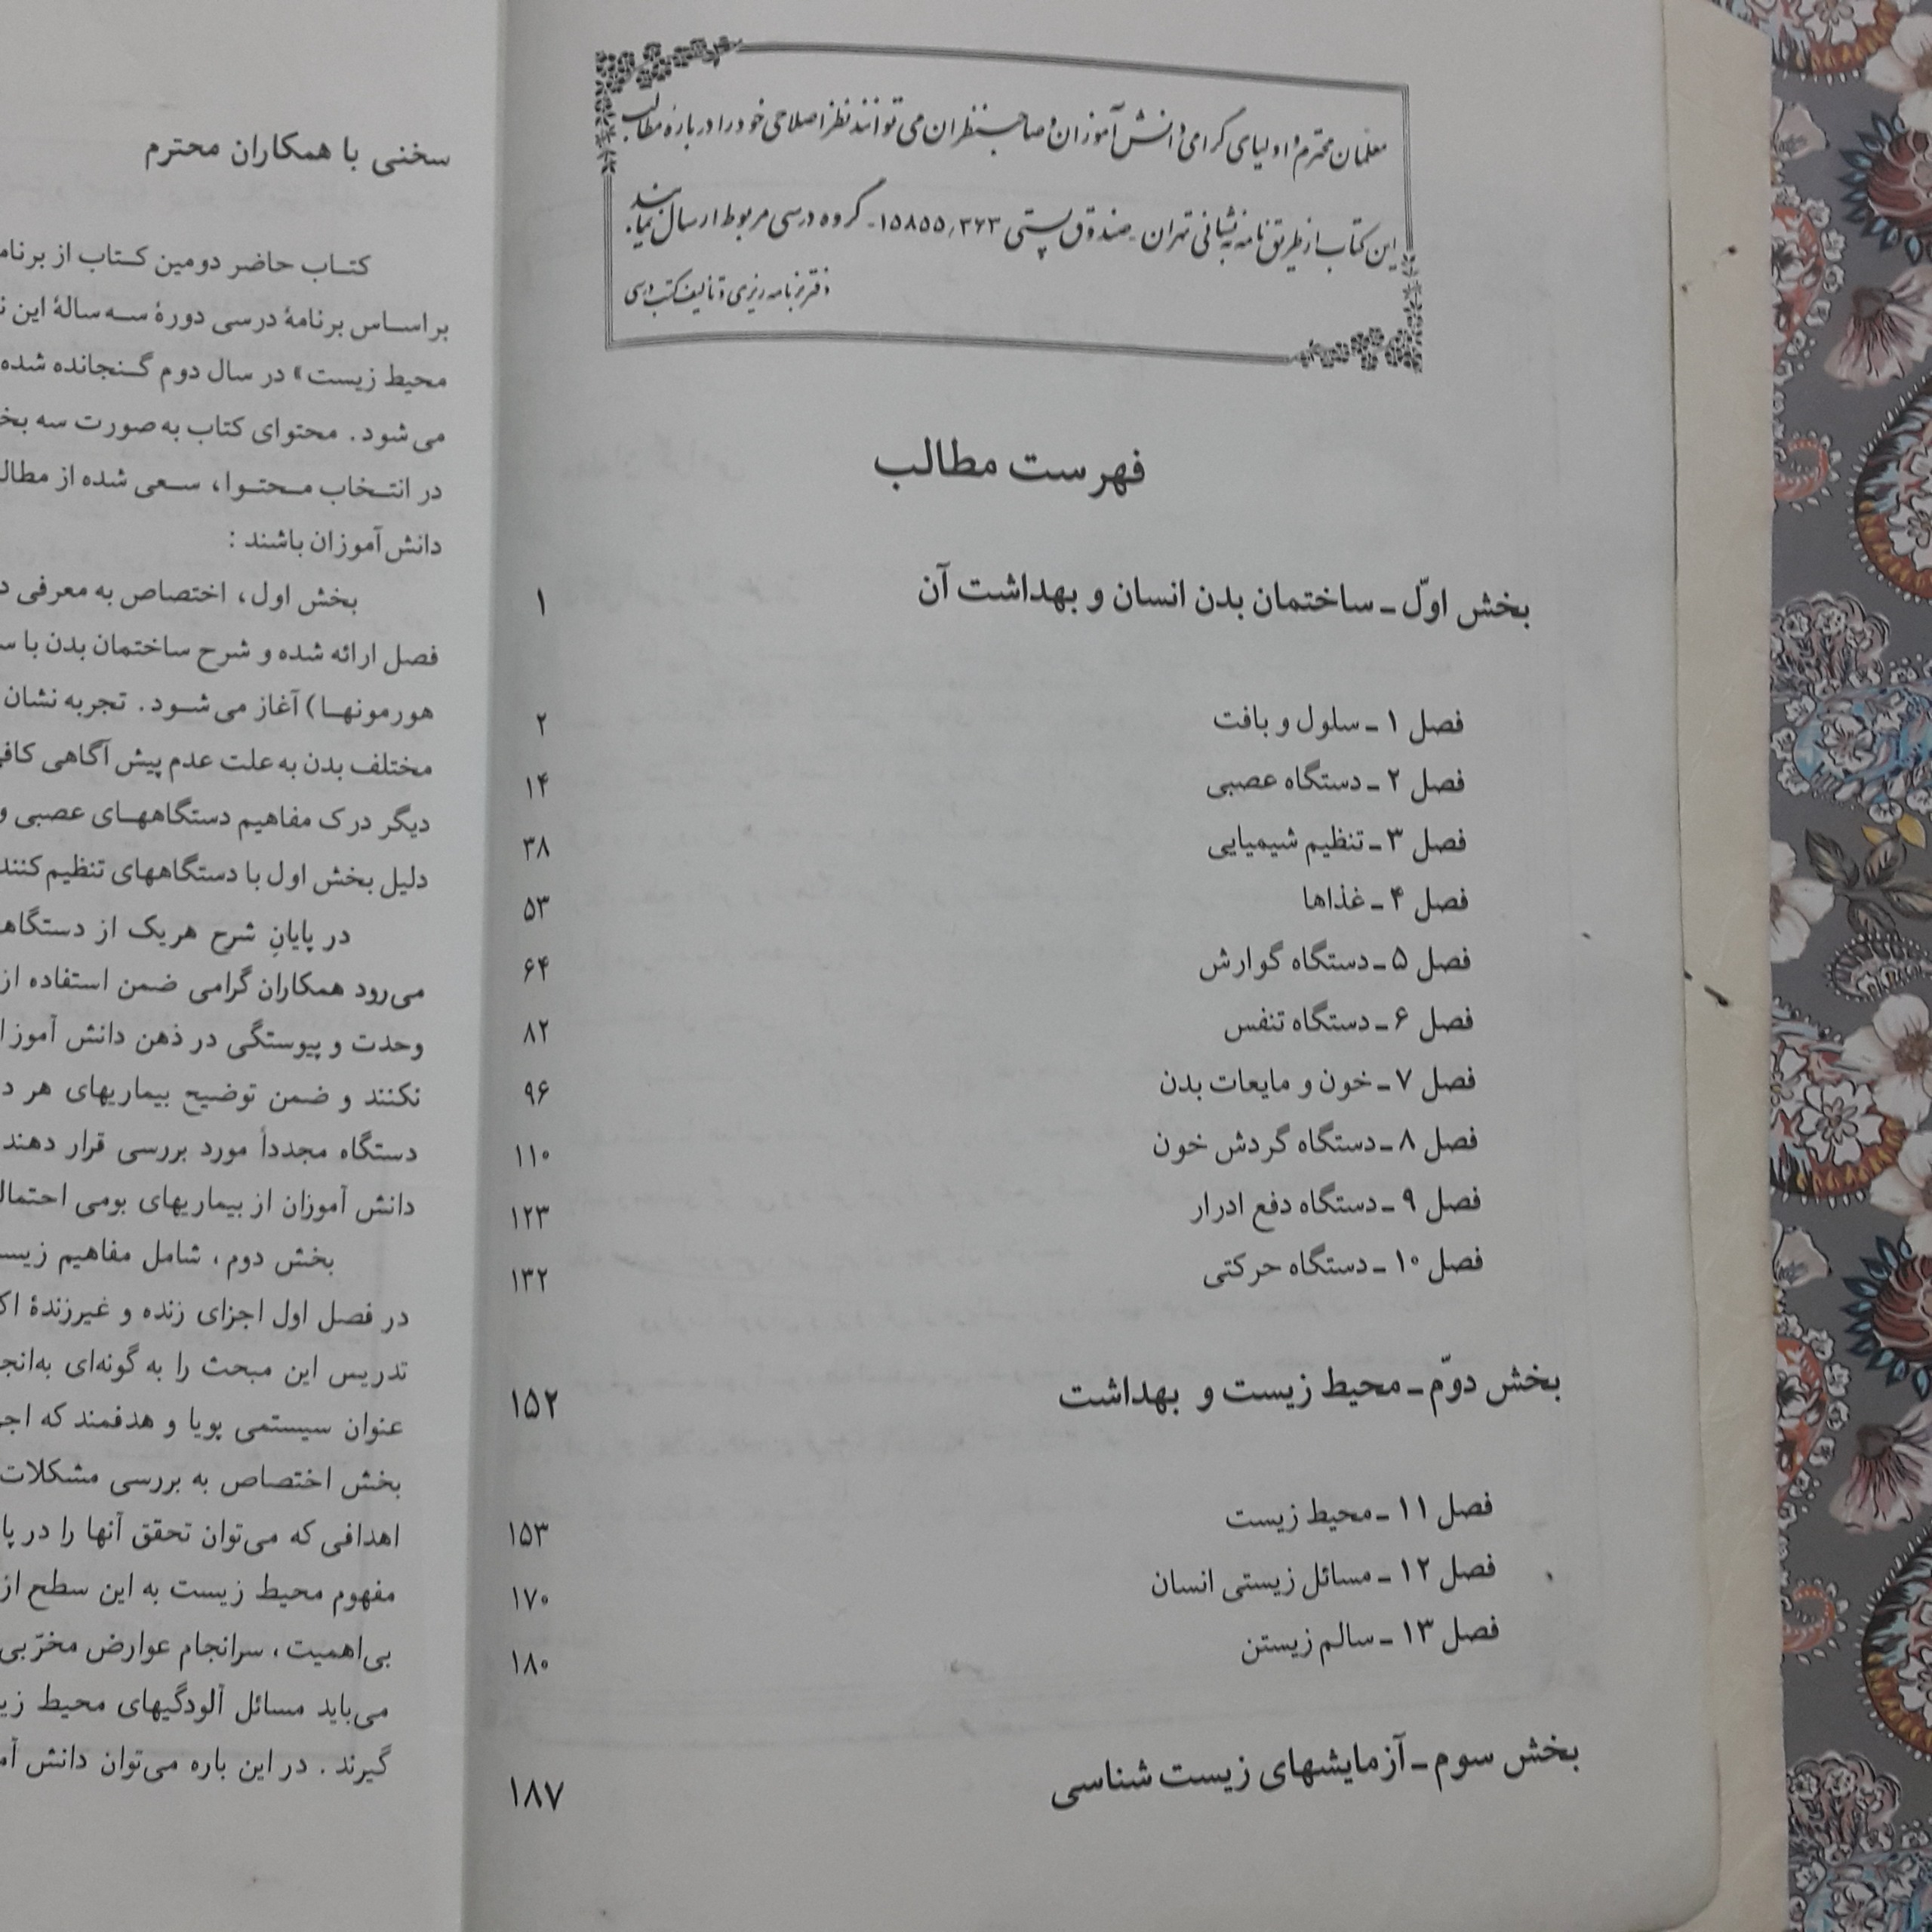 معلمان محترم و اولیای گرامی دانش‌آموزان و صاحبنظران می‌توانند نظر اصلاحی خود را درباره مطالب
این کتاب از طریق نامه به نشانی تهران ـ صندوق پستی ۱۵۸۵۵٫۳۶۳ـ گروه درسی مربوط ارسال نمایند.
دفتر برنامه‌ریزی و تألیف کتب درسی
فهرست مطالب
بخش اوّل ـ ساختمان بدن انسان و بهداشت آن ۱
فصل ۱ ـ سلول و بافت ۲
فصل ۲ ـ دستگاه عصبی ۱۴
فصل ۳ ـ تنظیم شیمیایی ۳۸
فصل ۴ ـ غذاها ۵۳
فصل ۵ ـ دستگاه گوارش ۶۴
فصل ۶ ـ دستگاه تنفس ۸۲
فصل ۷ ـ خون و مایعات بدن ۹۶
فصل ۸ ـ دستگاه گردش خون ۱۱۰
فصل ۹ ـ دستگاه دفع ادرار ۱۲۳
فصل ۱۰ ـ دستگاه حرکتی ۱۳۲
بخش دوّم ـ محیط زیست و بهداشت ۱۵۲
فصل ۱۱ ـ محیط زیست ۱۵۳
فصل ۱۲ ـ مسائل زیستی انسان ۱۷۰
فصل ۱۳ ـ سالم زیستن ۱۸۰
بخش سوم ـ آزمایشهای زیست شناسی ۱۸۷
سخنی با همکاران محترم
کتاب حاضر دومین کتاب از
براساس برنامهٔ درسی دورهٔ سه سالهٔ این
محیط زیست» در سال دوم گنجانده شده
می‌شود. محتوای کتاب به صورت سه
در انتخاب محتوا، سعی شده از
دانش‌آموزان باشند :
بخش اول، اختصاص به معرفی
فصل ارائه شده و شرح ساختمان بدن با
هورمونها) آغاز می‌شود. تجربه نشان
مختلف بدن به علت عدم پیش آگاهی
دیگر درک مفاهیم دستگاههای عصبی و
دلیل بخش اول با دستگاههای
در پایانِ شرح هریک از
می‌رود همکاران گرامی ضمن استفاده از
وحدت و پیوستگی در ذهن دانش
نکنند و ضمن توضیح بیماریهای هر
دستگاه مجدداً مورد بررسی قرار دهند
دانش آموزان از بیماریهای بومی
بخش دوم، شامل مفاهیم
در فصل اول اجزای زنده و غیرزندهٔ
تدریس این مبحث را به گونه‌ای
عنوان سیستمی پویا و هدفمند که
بخش اختصاص به بررسی مشکلات
اهدافی که می‌توان تحقق آنها را در
مفهوم محیط زیست به این سطح از
بی‌اهمیت، سرانجام عوارض
می‌باید مسائل آلودگیهای محیط
گیرند. در این باره می‌توان دانش